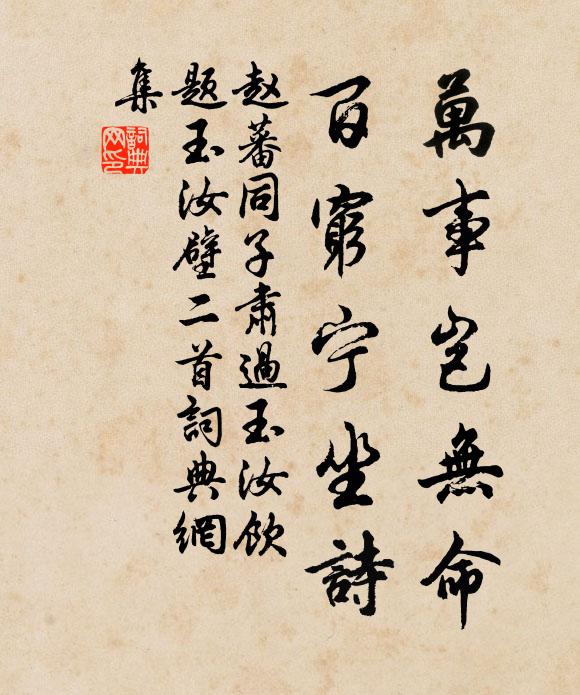 萬事岂無命
百窮宁坐詩
赵蕃同子肅過玉汝飲
题玉汝壁二首詞典網
集
詞典网印